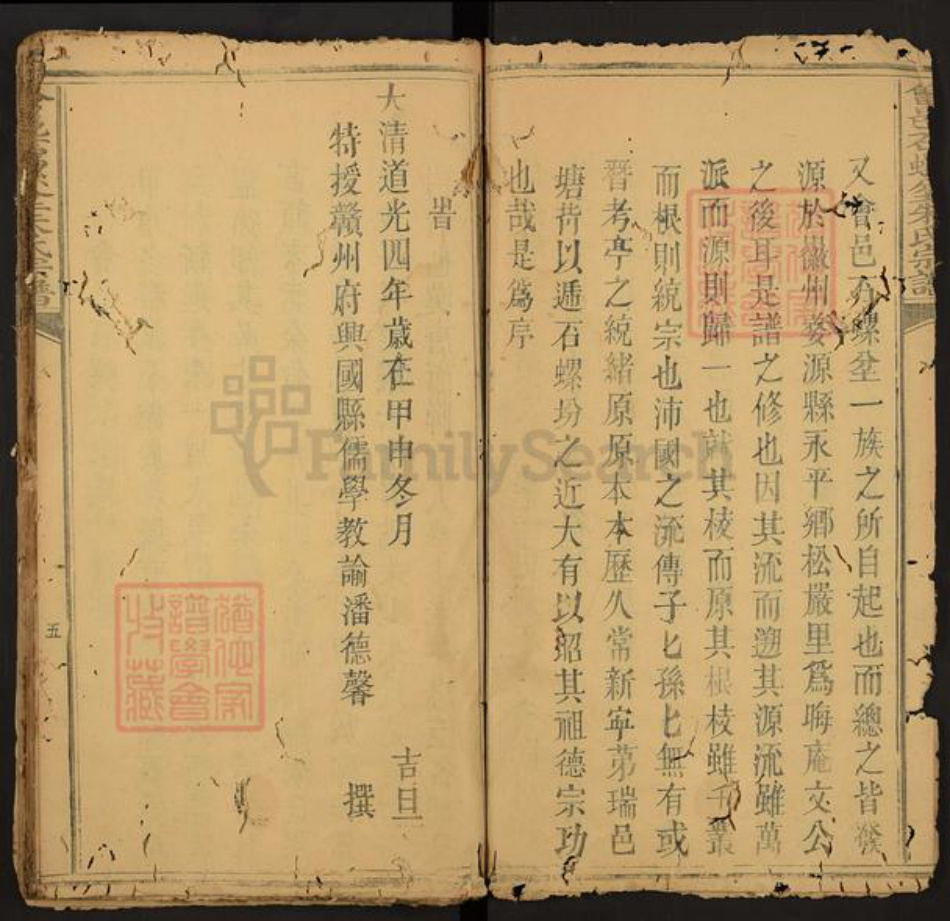 又會邑石螺坌一族之所自起也而總之皆發
源於徽州婺源縣永平鄉松嚴里爲晦庵文公
之後耳是譜之修也因其流而遡其源流雖萬
派而源則歸一也就其棱而原其根枝雖千叢
而根則統宗也沛國之流傳子匕孫匕無有或
替考亭之統緒原原本本歷久常新寧苐瑞邑
塘背以逓石螺坋之近大有以昭其祖德宗功
也哉是爲序
旹
大清道光四年歲在甲申冬月 吉旦
特授贛州府興國縣儒學教諭潘德馨 撰
五
會邑石螺坌朱氏宗譜
FamilySearch